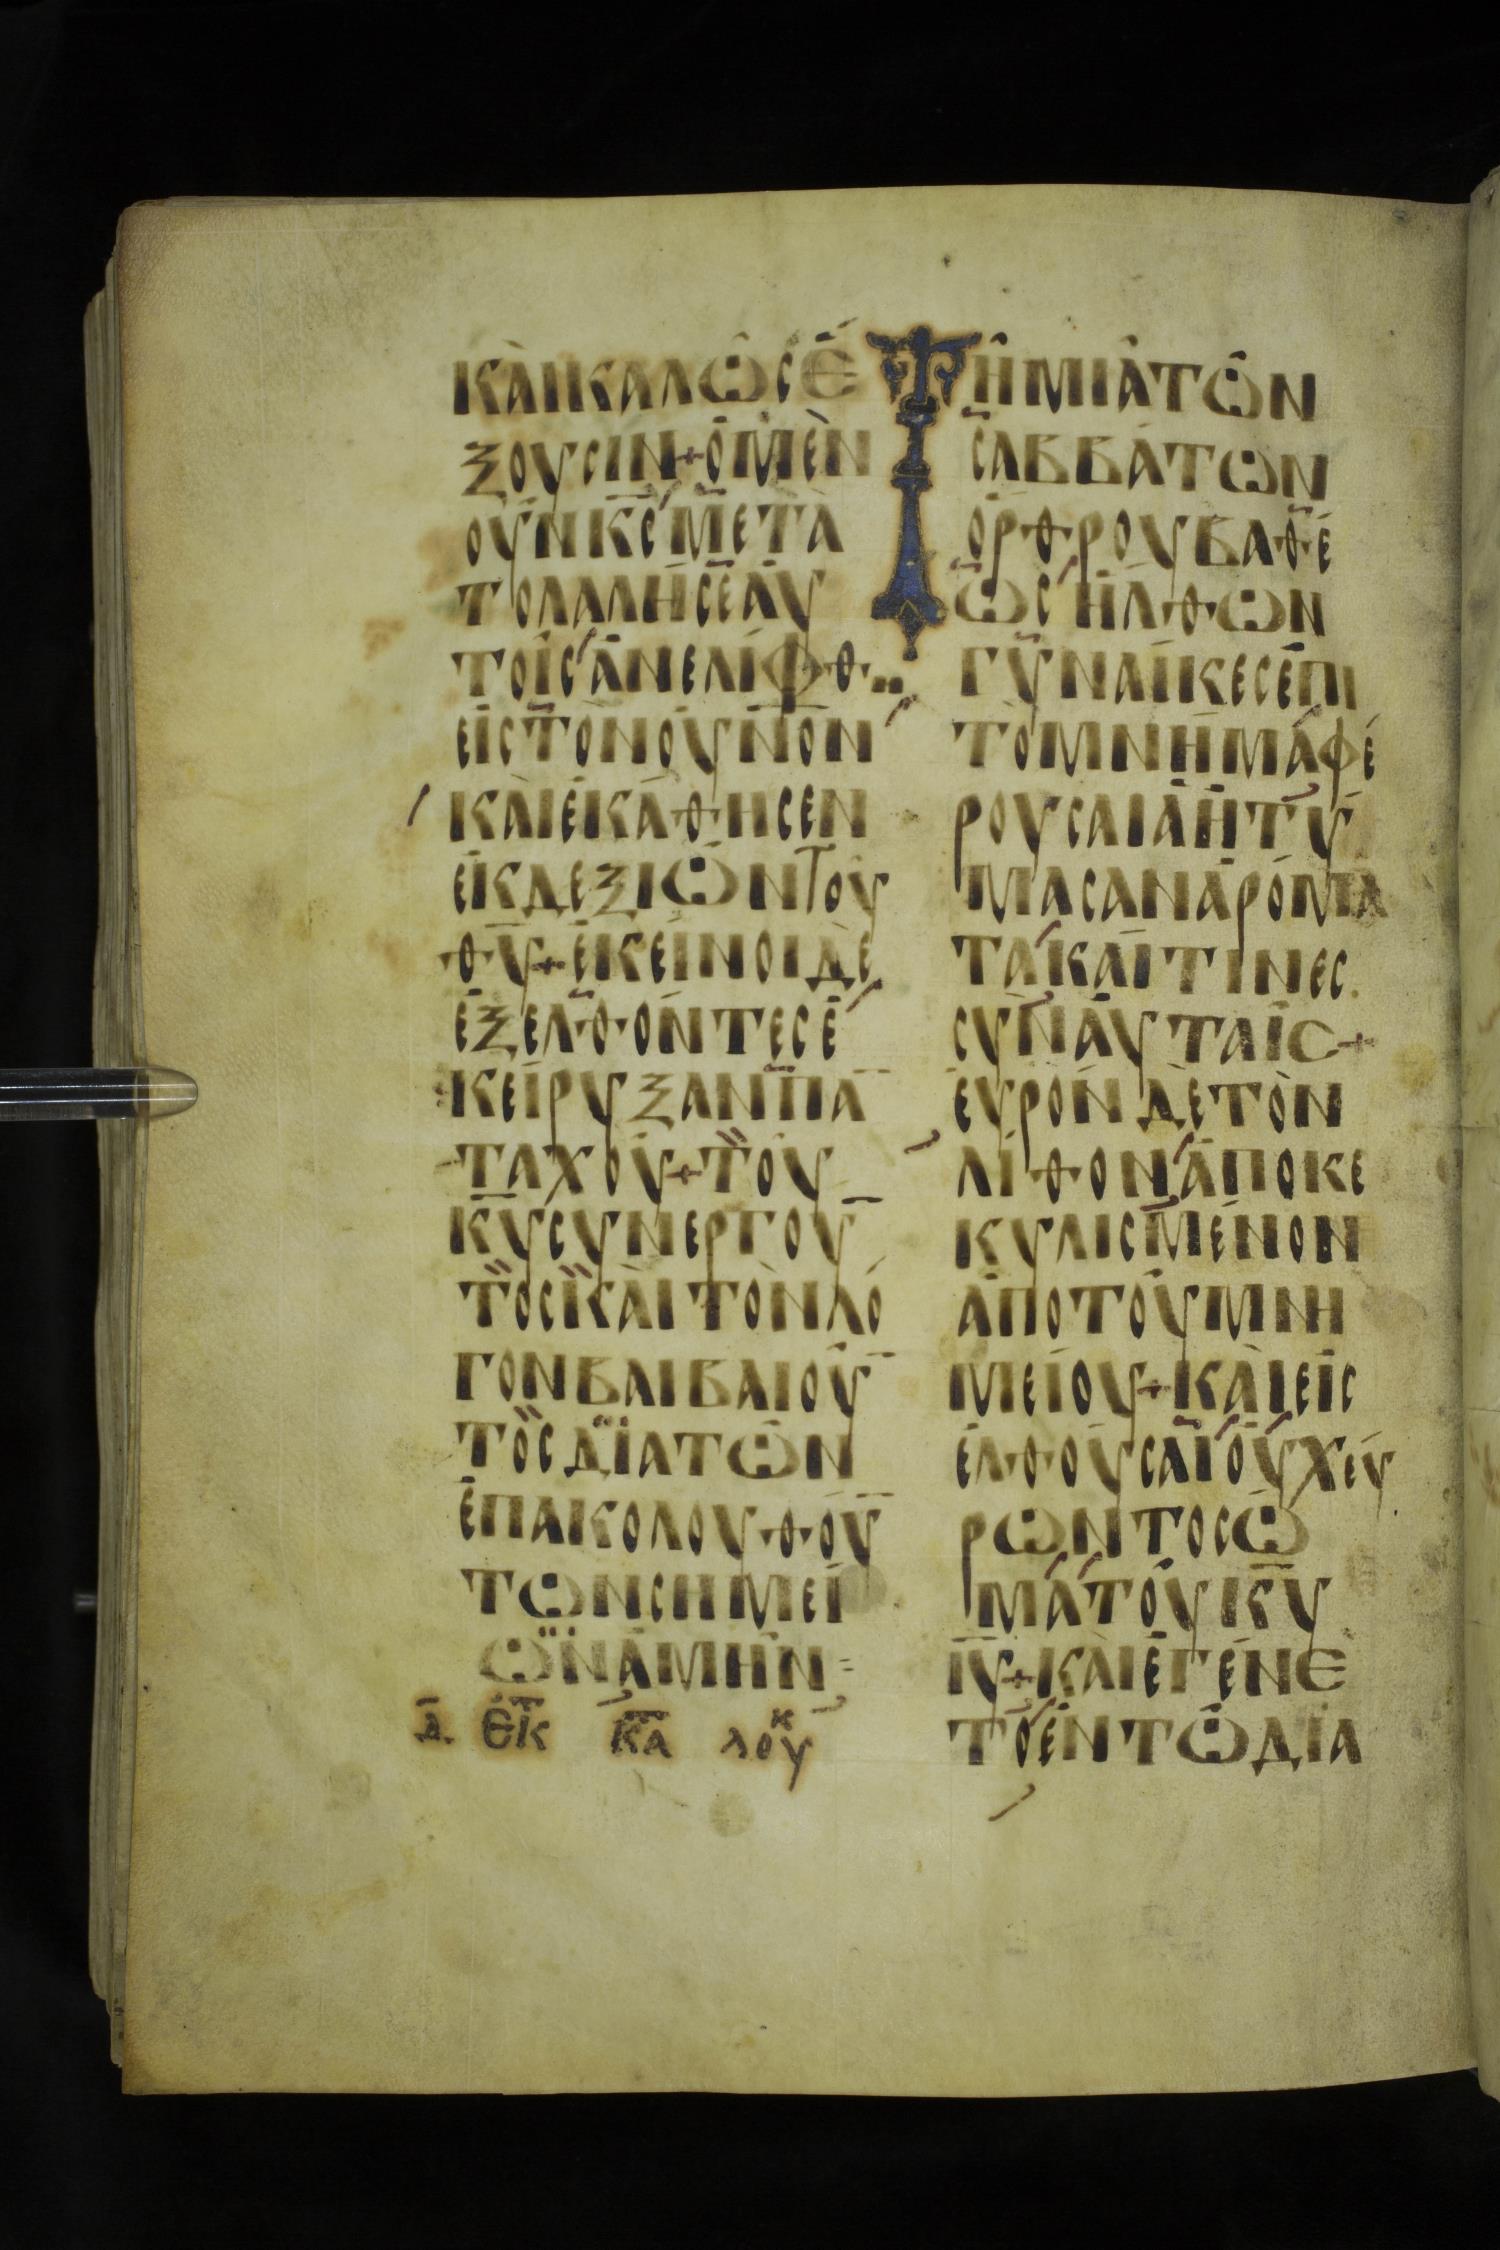 ΚΑΙΚΑΛΩΣΕ
ΞΟΥΣΙΝ+ΟΜΕΝ
ΟΥΝΚΣΜΕΤΑ
ΤΟΛΑΛΗΣΕΑΥ
ΤΟΙΣΑΝΕΛΙΦΘ..
ΕΙΣΤΟΝΟΥΝΟΝ
ΚΑΙΕΚΑΘΗΣΕΝ
ΕΚΔΕΞΙΩΝΤΟΥ
ΘΥ+ΕΚΕΙΝΟΙΔΕ
ΕΞΕΛΘΟΝΤΕΣΕ
ΚΕΙΡΥΞΑΝΠΑ
ΤΑΧΟΥ+ΤΟΥ
ΚΥΣΥΝΕΡΓΟΥ
ΤΟΣΚΑΙΤΟΝΛΟ
ΓΟΝΒΑΙΒΑΙΟΥ
ΤΟΣΔΙΑΤΩΝ
ΕΠΑΚΟΛΟΥΘΟΥ
ΤΩΝΣΗΜΕΙ
ΩΝΑΜΗΝ=
Δ. ΕΚ ΚΑ ΛΟΥΚ
ΤΗΜΙΑΤΩΝ
ΣΑΒΒΑΤΩΝ
ΟΡΘΡΟΥΒΑΘΕ
ΩΣΗΛΘΩΝ
ΓΥΝΑΙΚΕΣΕΠΙ
ΤΟΜΝΗΜΑΦΕ
ΡΟΥΣΑΙΑΗΤΥ
ΜΑΣΑΝΑΡΟΜΑ
ΤΑΚΑΙΤΙΝΕΣ
ΣΥΝΑΥΤΑΙΣ+
ΕΥΡΟΝΔΕΤΟΝ
ΛΙΘΟΝΑΠΟΚΕ
ΚΥΛΙΣΜΕΝΟΝ
ΑΠΟΤΟΥΜΝΗ
ΜΕΙΟΥ+ΚΑΙΕΙΣ
ΕΛΘΟΥΣΑΙΟΥΧΕΥ
ΡΩΝΤΟΣΩ
ΜΑΤΟΥΚΥ
ΙΥ+ΚΑΙΕΓΕΝΕ
ΤΟΕΝΤΩΔΙΑ